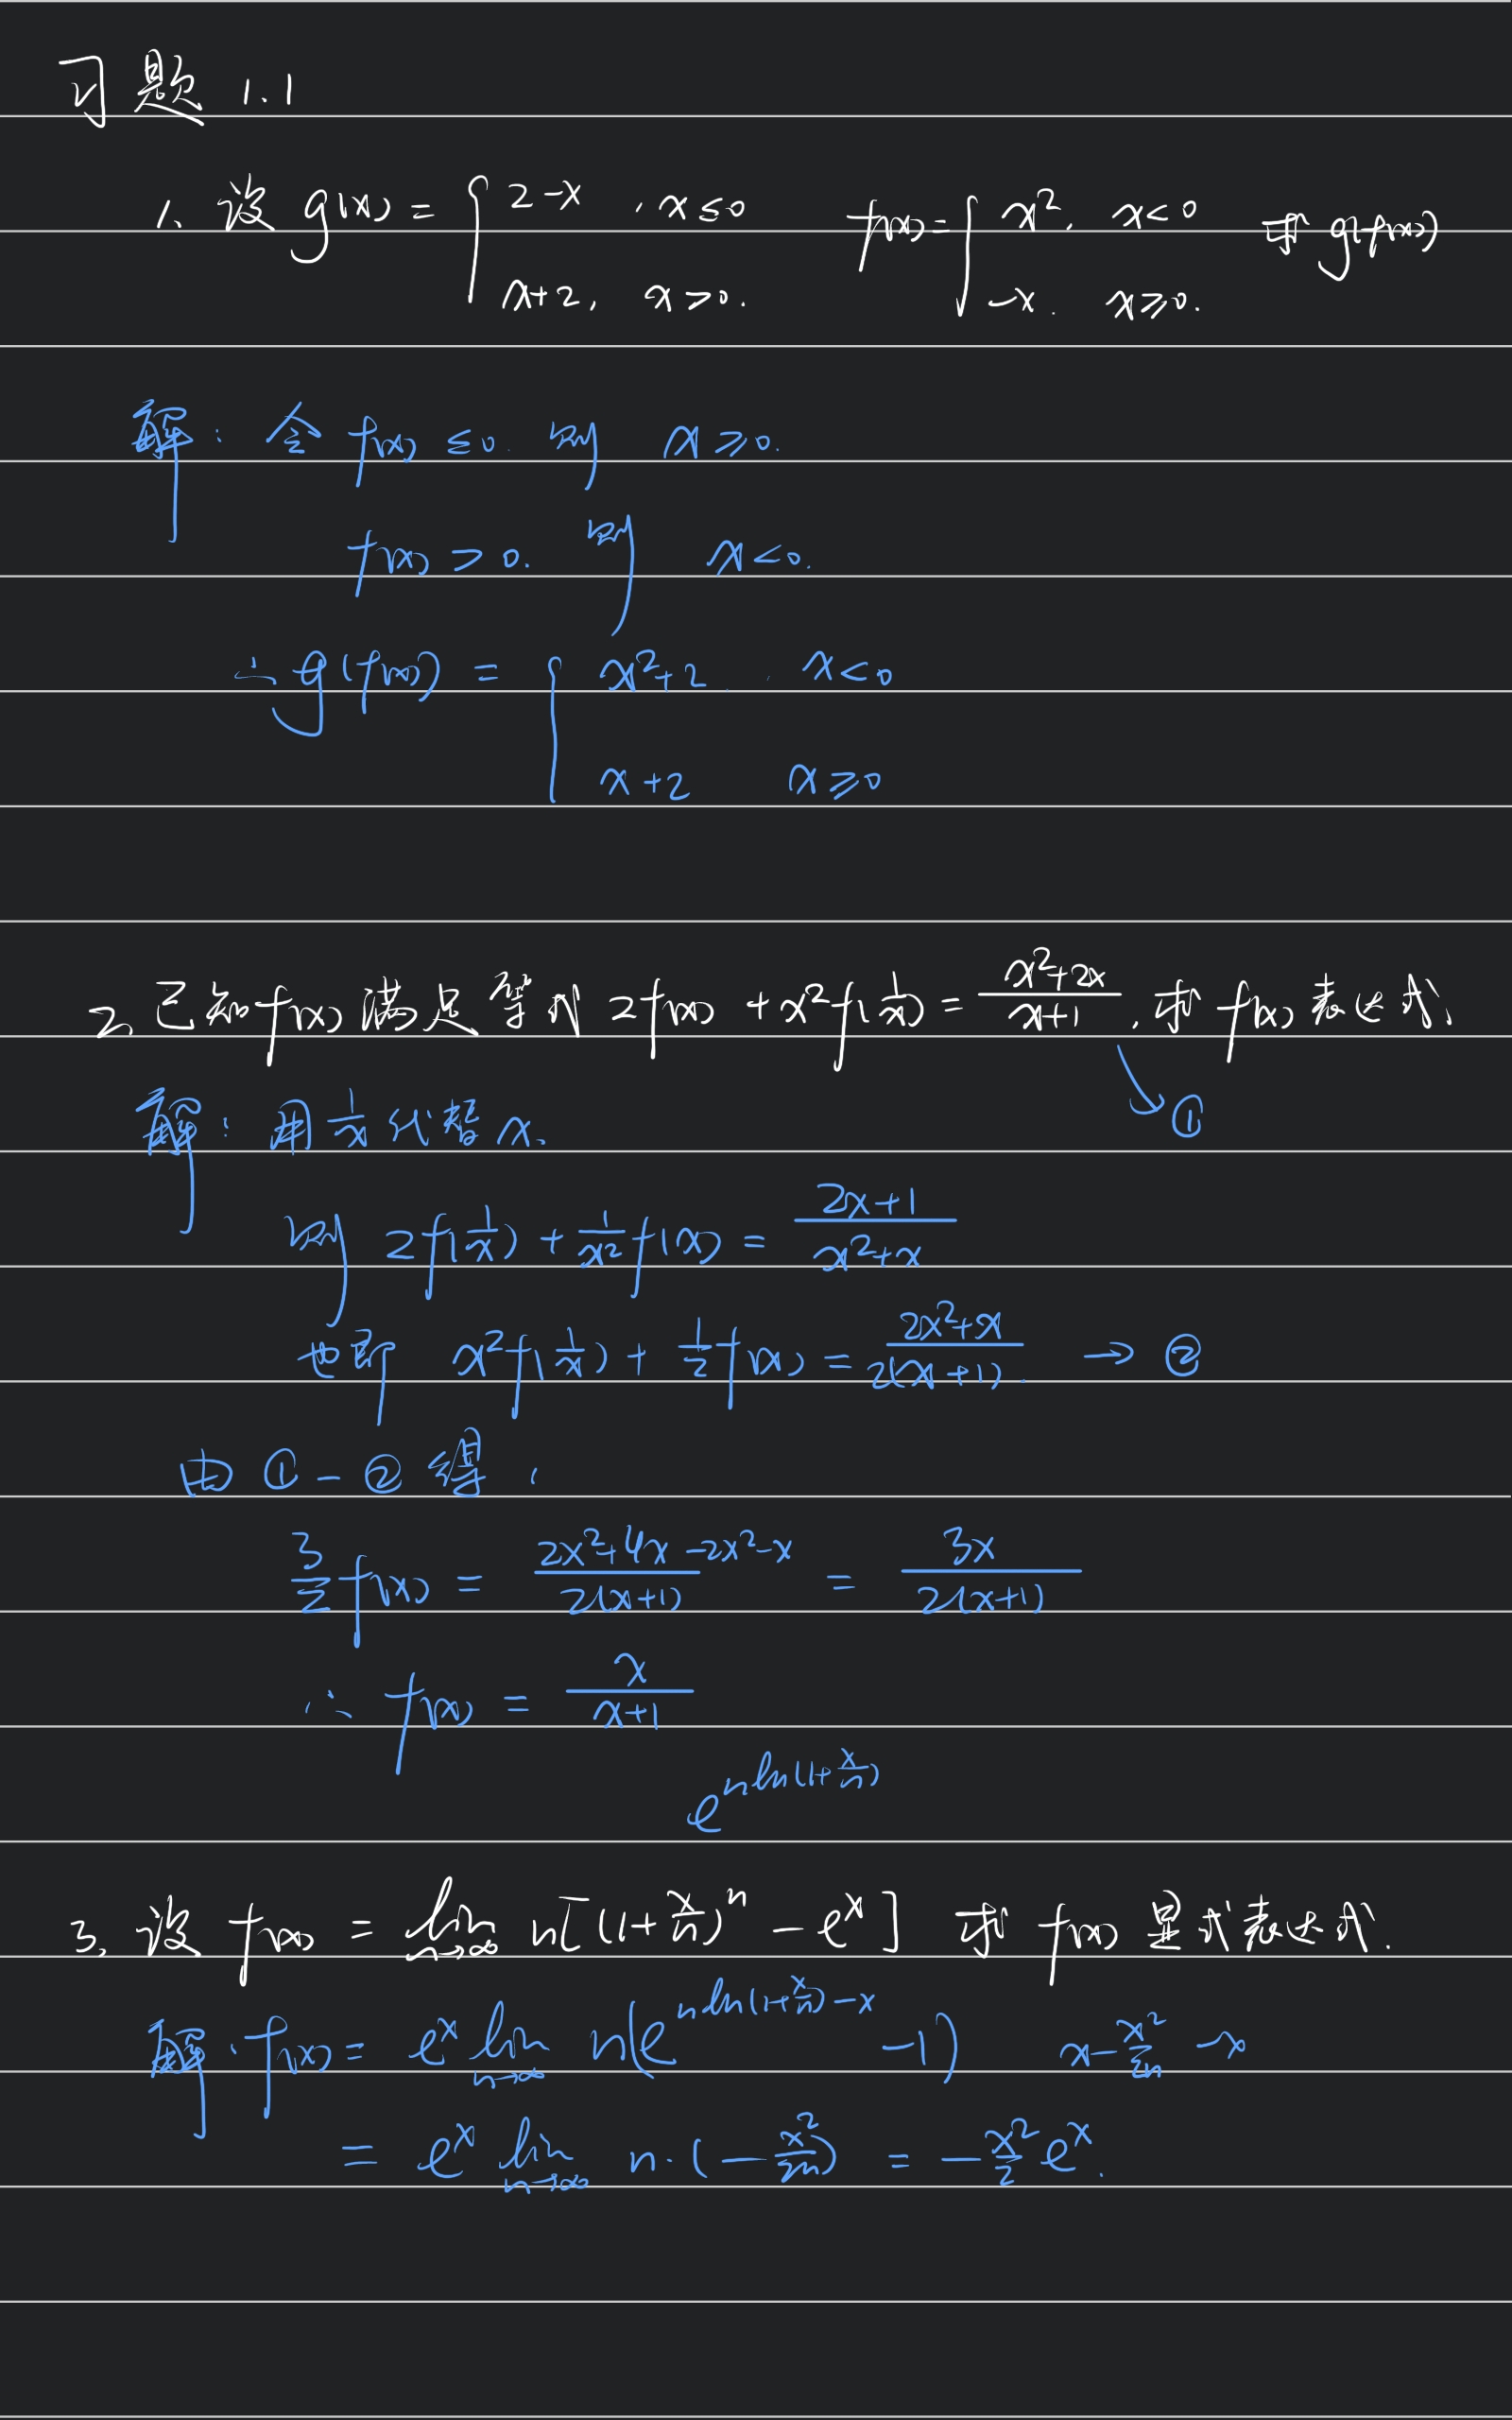 习题 1.1
1. 设 g(x) = { 2-x , x≤0   f(x) = { x², x<0   求 g(f(x))
x+2, x>0.   -x. x≥0.
解: 令 f(x) ≤0. 则 x≥0.
f(x) >0. 则 x<0.
∴ g(f(x)) = { x²+2 , x<0
x+2   x≥0
2. 已知 f(x) 满足等式 2f(x) + x²f(1/x) = (x²+2x)/(x+1) , 求 f(x) 表达式.
①
解: 用 1/x 代替 x.
则 2f(1/x) + 1/x² f(x) = (2x+1)/(x²+x)
也即 x²f(1/x) + 1/2 f(x) = (2x²+x)/(2(x+1)). → ②
由 ① - ② 得 ,
3/2 f(x) = (2x²+4x-2x²-x)/(2(x+1)) = 3x/(2(x+1))
∴ f(x) = x/(x+1)
e^(n ln(1+x/n))
3. 设 f(x) = lim n→∞ n[(1+x/n)^n - e^x] 求 f(x) 显式表达式.
解: f(x) = e^x lim n→∞ n(e^(n ln(1+x/n) - x) - 1)   x - x²/2n - x
= e^x lim n→∞ n·(-x²/2n) = -x²/2 e^x.